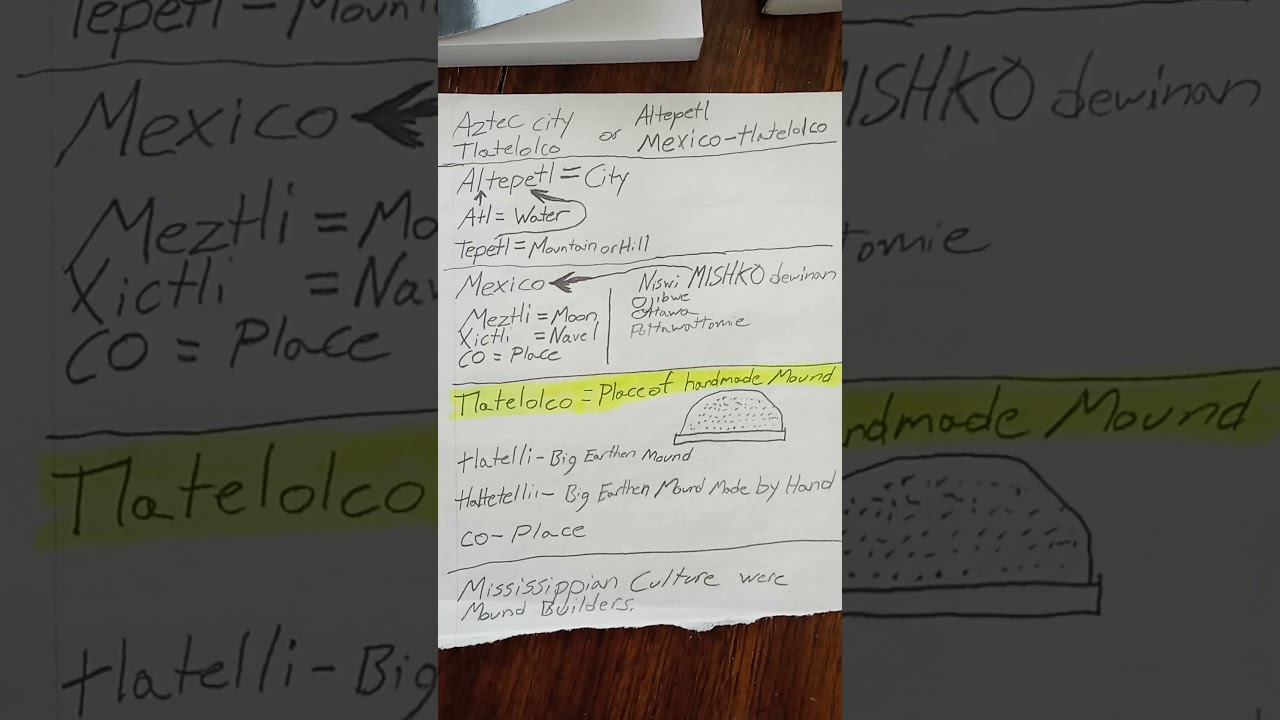 Aztec city or Altepetl
Tlatelolco Mexico-tlatelolco
Altepetl = City
Atl = Water
Tepetl = Mountain or Hill
Mexico Niswi MISHKO dewinan
Ojibwe
Ottawa
Pottawattomie
Meztli = Moon
Xictli = Navel
CO = Place
Tlatelolco = Place of handmade Mound
tlatelli - Big Earthen Mound
Big Earthen Mound Made by Hand
CO - Place
Mississippian Culture were
Mound Builders.